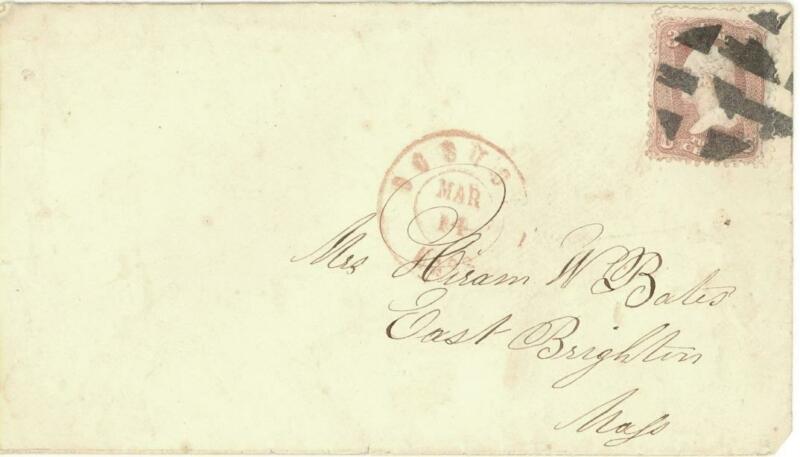 MAR
14
Mrs Hiram W Bates
East Brighton
Mass